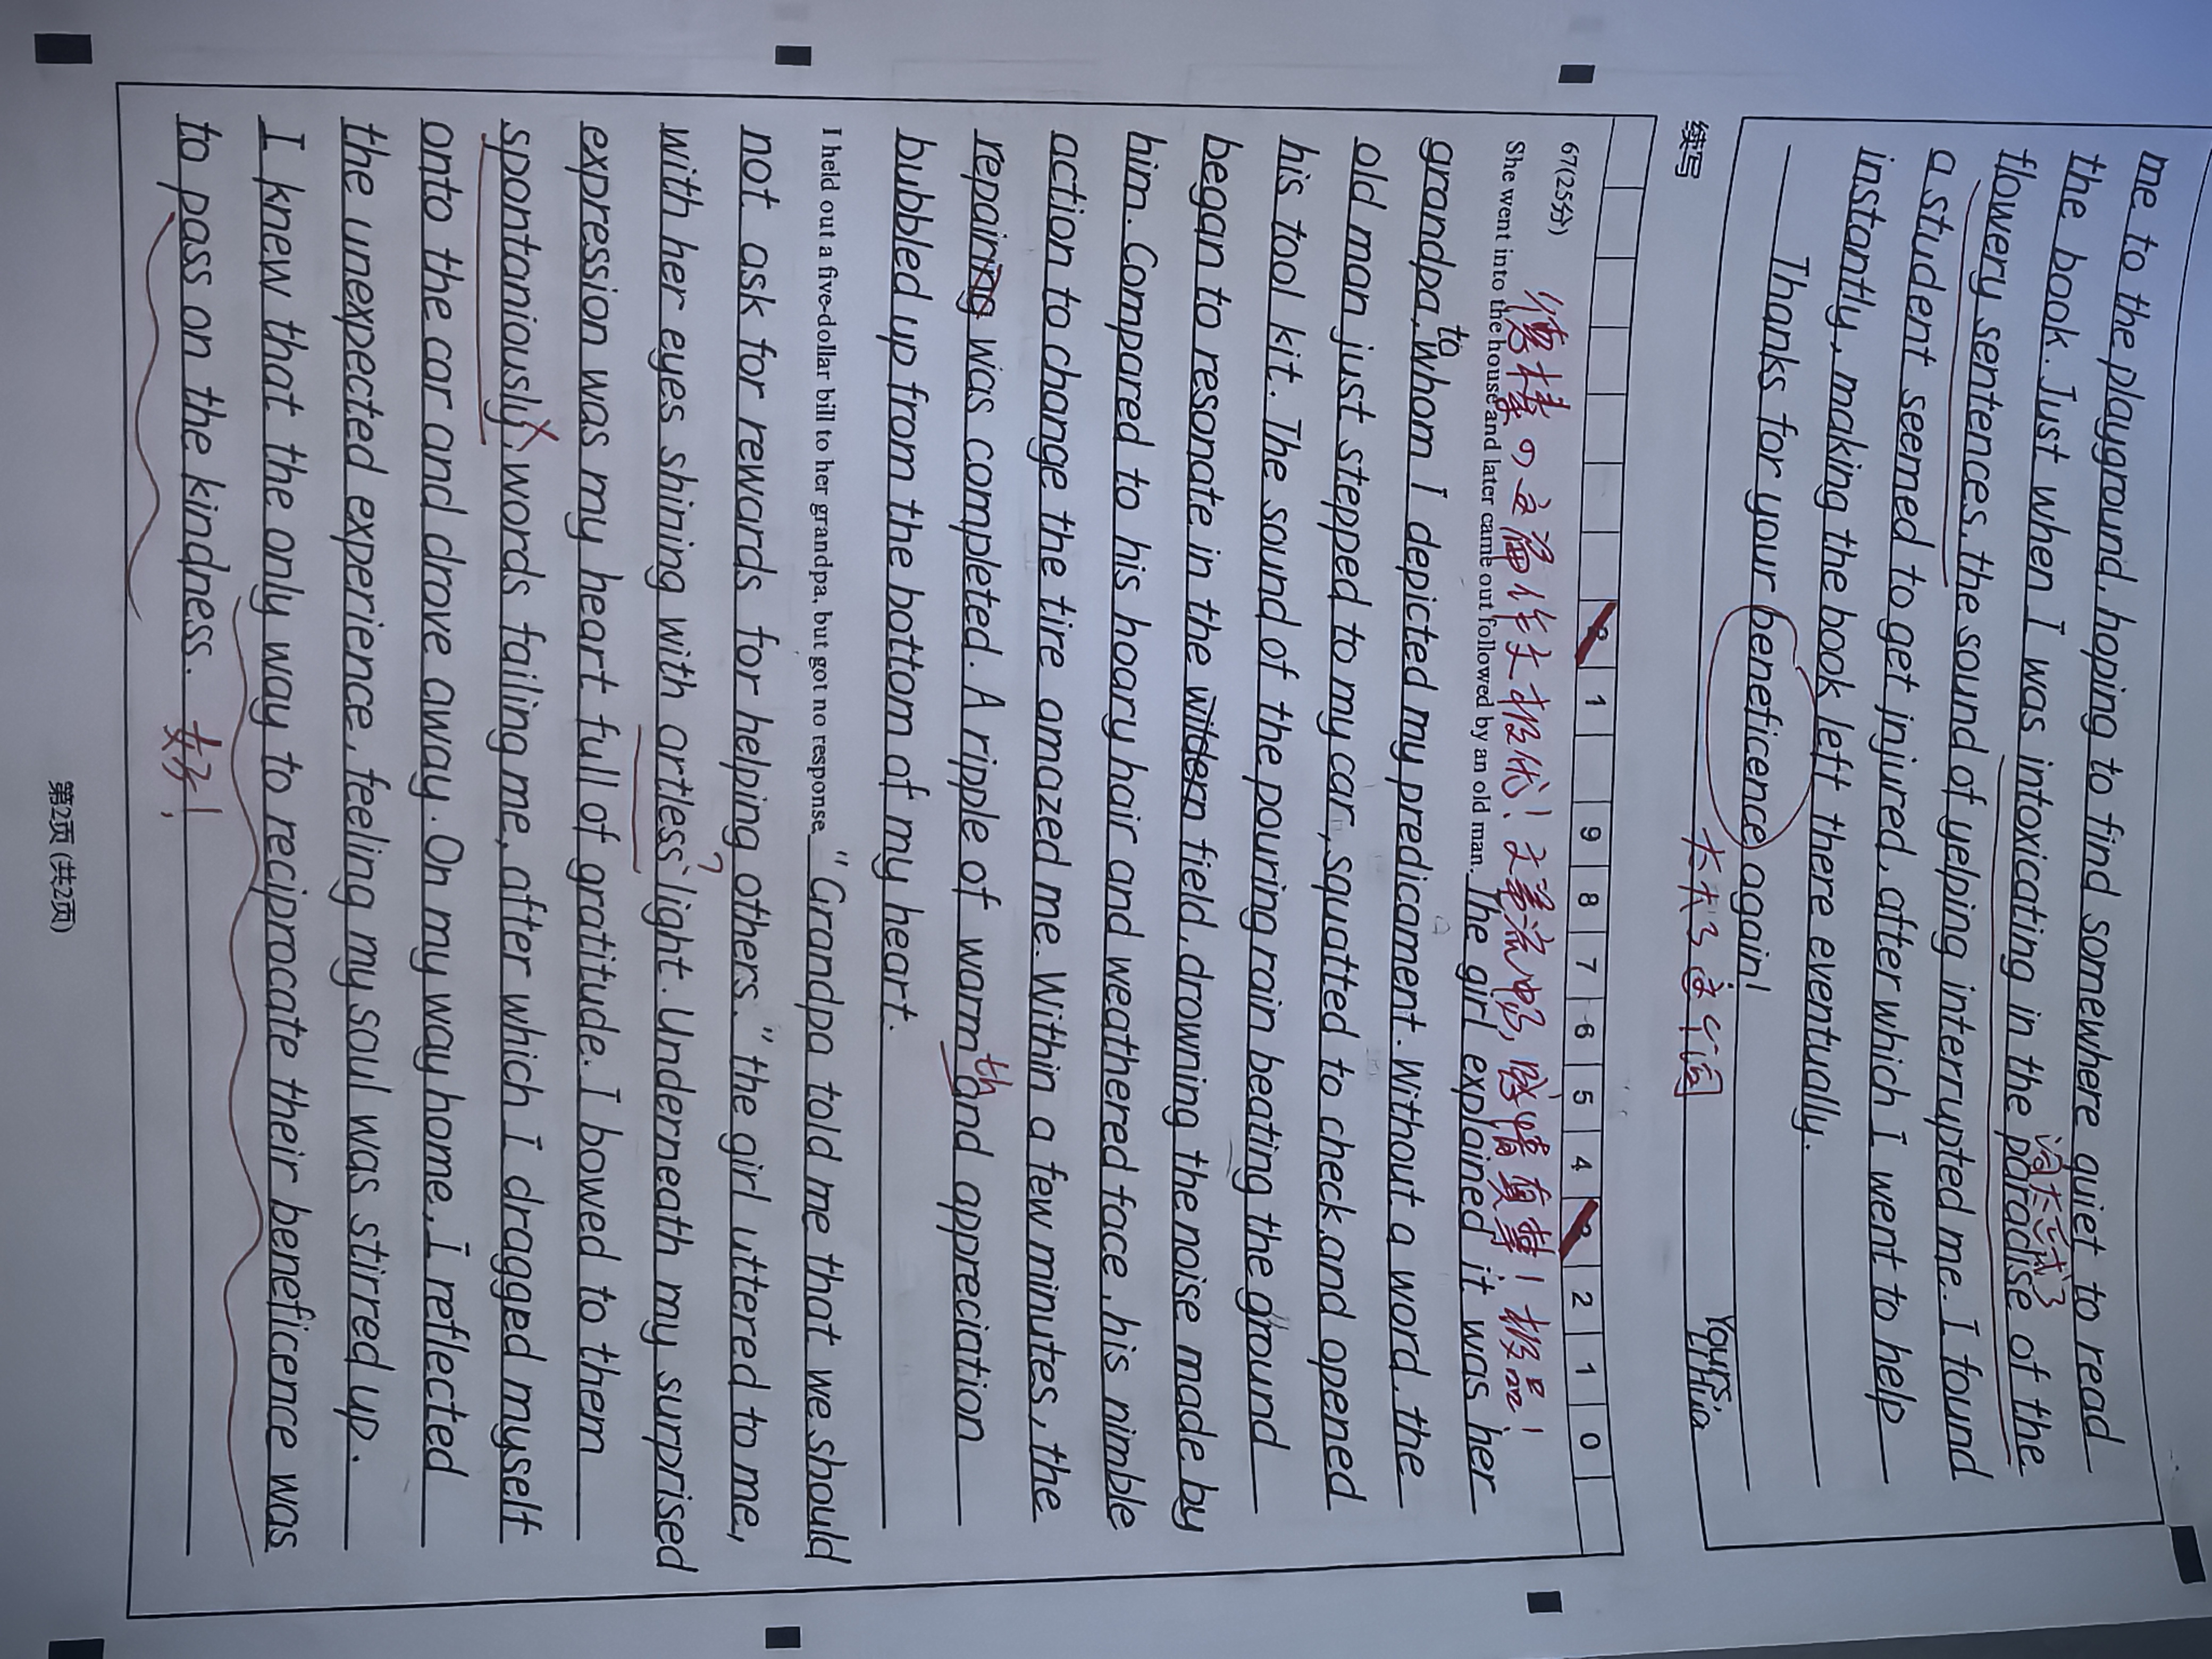 me to the playground, hoping to find somewhere quiet to read
the book. Just when I was intoxicating in the paradise of the
词太三成了
flowery sentences, the sound of yelping interrupted me. I found
a student seemed to get injured, after which I went to help
instantly, making the book left there eventually.
Thanks for your beneficence again!
太大了这个词
Yours,
Li Hua
续写
1 9 8 7 6 5 4 2 1 0
67(25分)
の 文 作文极优! 文笔流畅, 感情真挚! 极品!
She went into the house and later came out followed by an old man. The girl explained it was her
to
grandpa, whom I depicted my predicament. Without a word, the
old man just stepped to my car, squatted to check and opened
his tool kit. The sound of the pouring rain beating the ground
began to resonate in the field, drowning the noise made by
him. Compared to his hoary hair and weathered face, his nimble
action to change the tire amazed me. Within a few minutes, the
repairing was completed. A ripple of warm th and appreciation
bubbled up from the bottom of my heart.
I held out a five-dollar bill to her grandpa, but got no response. "Grandpa told me that we should
not ask for rewards for helping others." the girl uttered to me,
with her eyes shining with artless light. Underneath my surprised
?
expression was my heart full of gratitude. I bowed to them
spontaniously, words failing me, after which I dragged myself
onto the car and drove away. On my way home, I reflected
the unexpected experience, feeling my soul was stirred up.
I knew that the only way to reciprocate their beneficence was
to pass on the kindness. 好!
第2页 (共2页)